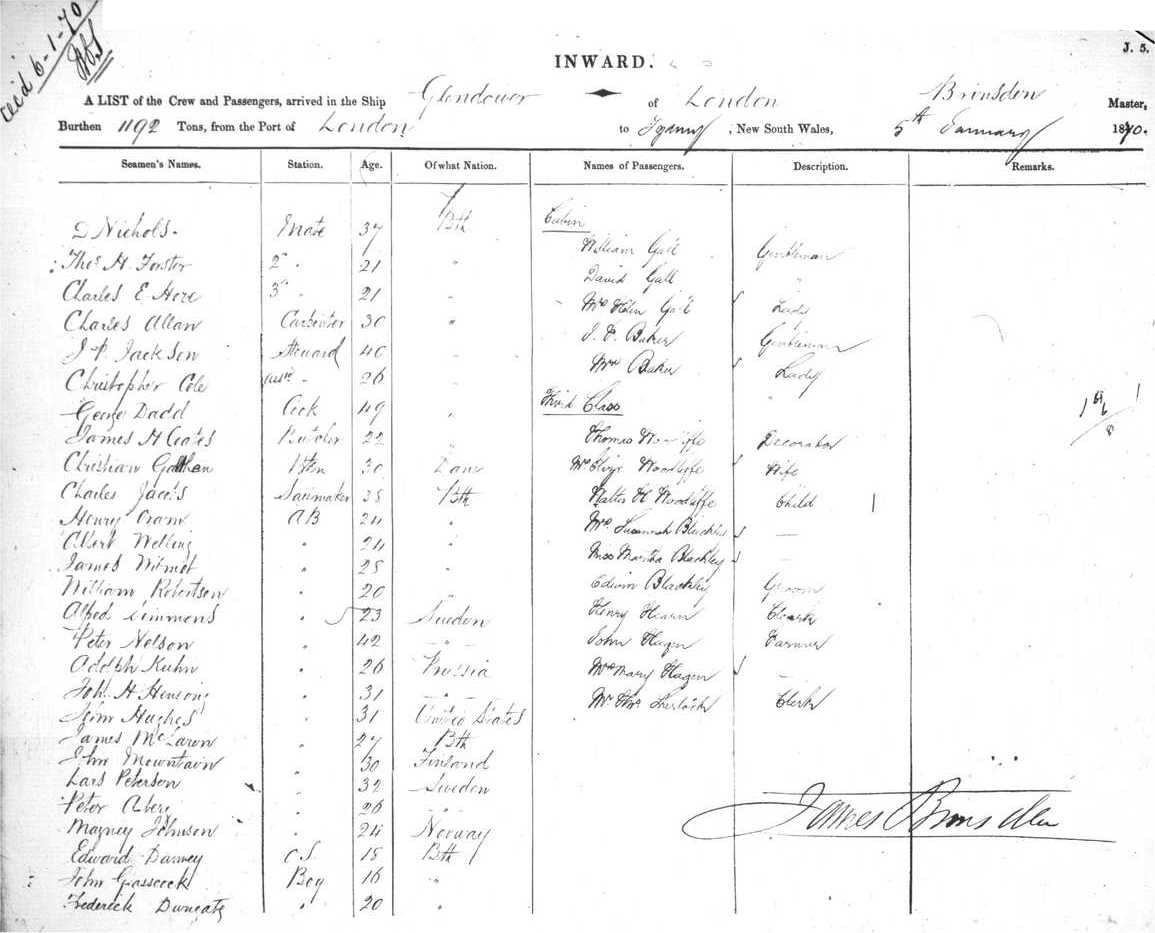 6-1-70
J. 5.
INWARD.
A LIST of the Crew and Passengers, arrived in the Ship Glendower of London Brinsden Master,
Burthen 1192 Tons, from the Port of London to Sydney, New South Wales, 5th January 1870.
Seamen's Names. Station. Age. Of what Nation. Names of Passengers. Description. Remarks.
D Nichols. Mate 37 Bth Cabin
William Gall Gentleman
Thos H. Forster 2d . 21 "
David Gall "
Charles E Hore 3d . 21 "
Mrs Helen Gall Lady
Charles Allan Carpenter 30 "
J. P. Baker Gentleman
J P. Jackson Steward 40 "
Mrs Baker Lady
Christopher Cole 26 "
George Dadd Cook 49 " Third Class
James H Coates Butcher 22 " Thomas Woodliffe Decorator
Christian 30 Dane Woodliffe Wife
Charles Jacobs Sailmaker 38 Bth Walter H Woodliffe Child 1
Henry Cram AB 24 " Mrs Susannah Blackley —
Albert Welling " 24 " Miss Martha Blackley —
James Witmot " 25 "
William Robertson " 20 " Edwin Blackley Groom
Alfred Simmons " 23 Sweden Henry Hearn Clerk
Peter Nelson " 42 " John Hagen Farmer
Adolph Kuhn " 26 Prussia Mrs Mary Hagen —
Joh. H Hensong " 31 " Mr Thos Sherlock Clerk
John Hughes " 31 United States
James McLaren " 27 Bth
John Mountain " 30 Finland
Lars Peterson " 32 Sweden
Peter Aberg " 26 "
Magney Johnson " 24 Norway
James Brinsden
Edward Barney O.S. 18 Bth
John Grasscock Boy 16 "
Frederick Dungate " 20 "